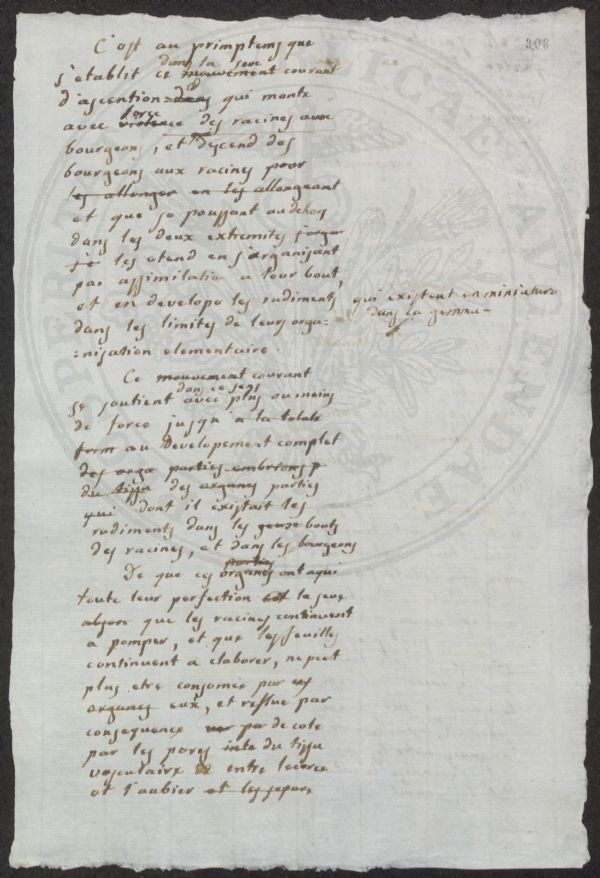 308
C'est au primptems que
dans la seve
s'etablit ce mouvement courant
d'ascention dans qui monte
force
avec violence des racines aux
bourgeons, et descend des
bourgeons aux racines pour
les allonger en les allongeant
et que se poussant au dehors
dans les deux extremites s'orga
les etend en s'organisant
par assimilation a leur bout,
et en develope les rudiments qui existent en miniature
dans la gemma
dans les limites de leurs orga=
=nisation elementaire.
Ce mouvement courant
dans ce sens
se soutient avec plus ou moins
de force jusqu'a la totale
form au developement complet
des orga parties embrions p
du tissu des organes parties
qui dont il existait les
rudiments dans les bouts
des racines, et dans les bourgeons
parties
De que ces organes ont aqui
toute leur perfection la seve
absorc que les racines continuent
a pomper, et que les feuilles
continuent a elaborer, ne peut
plus etre consomée par
organes eux, et reflue par
consequence par de cote
par les pores du tissu
vasculaire entre lecorce
et l'aubier et les separe
PROSPERITATI PUBLICAE AUGENDAE